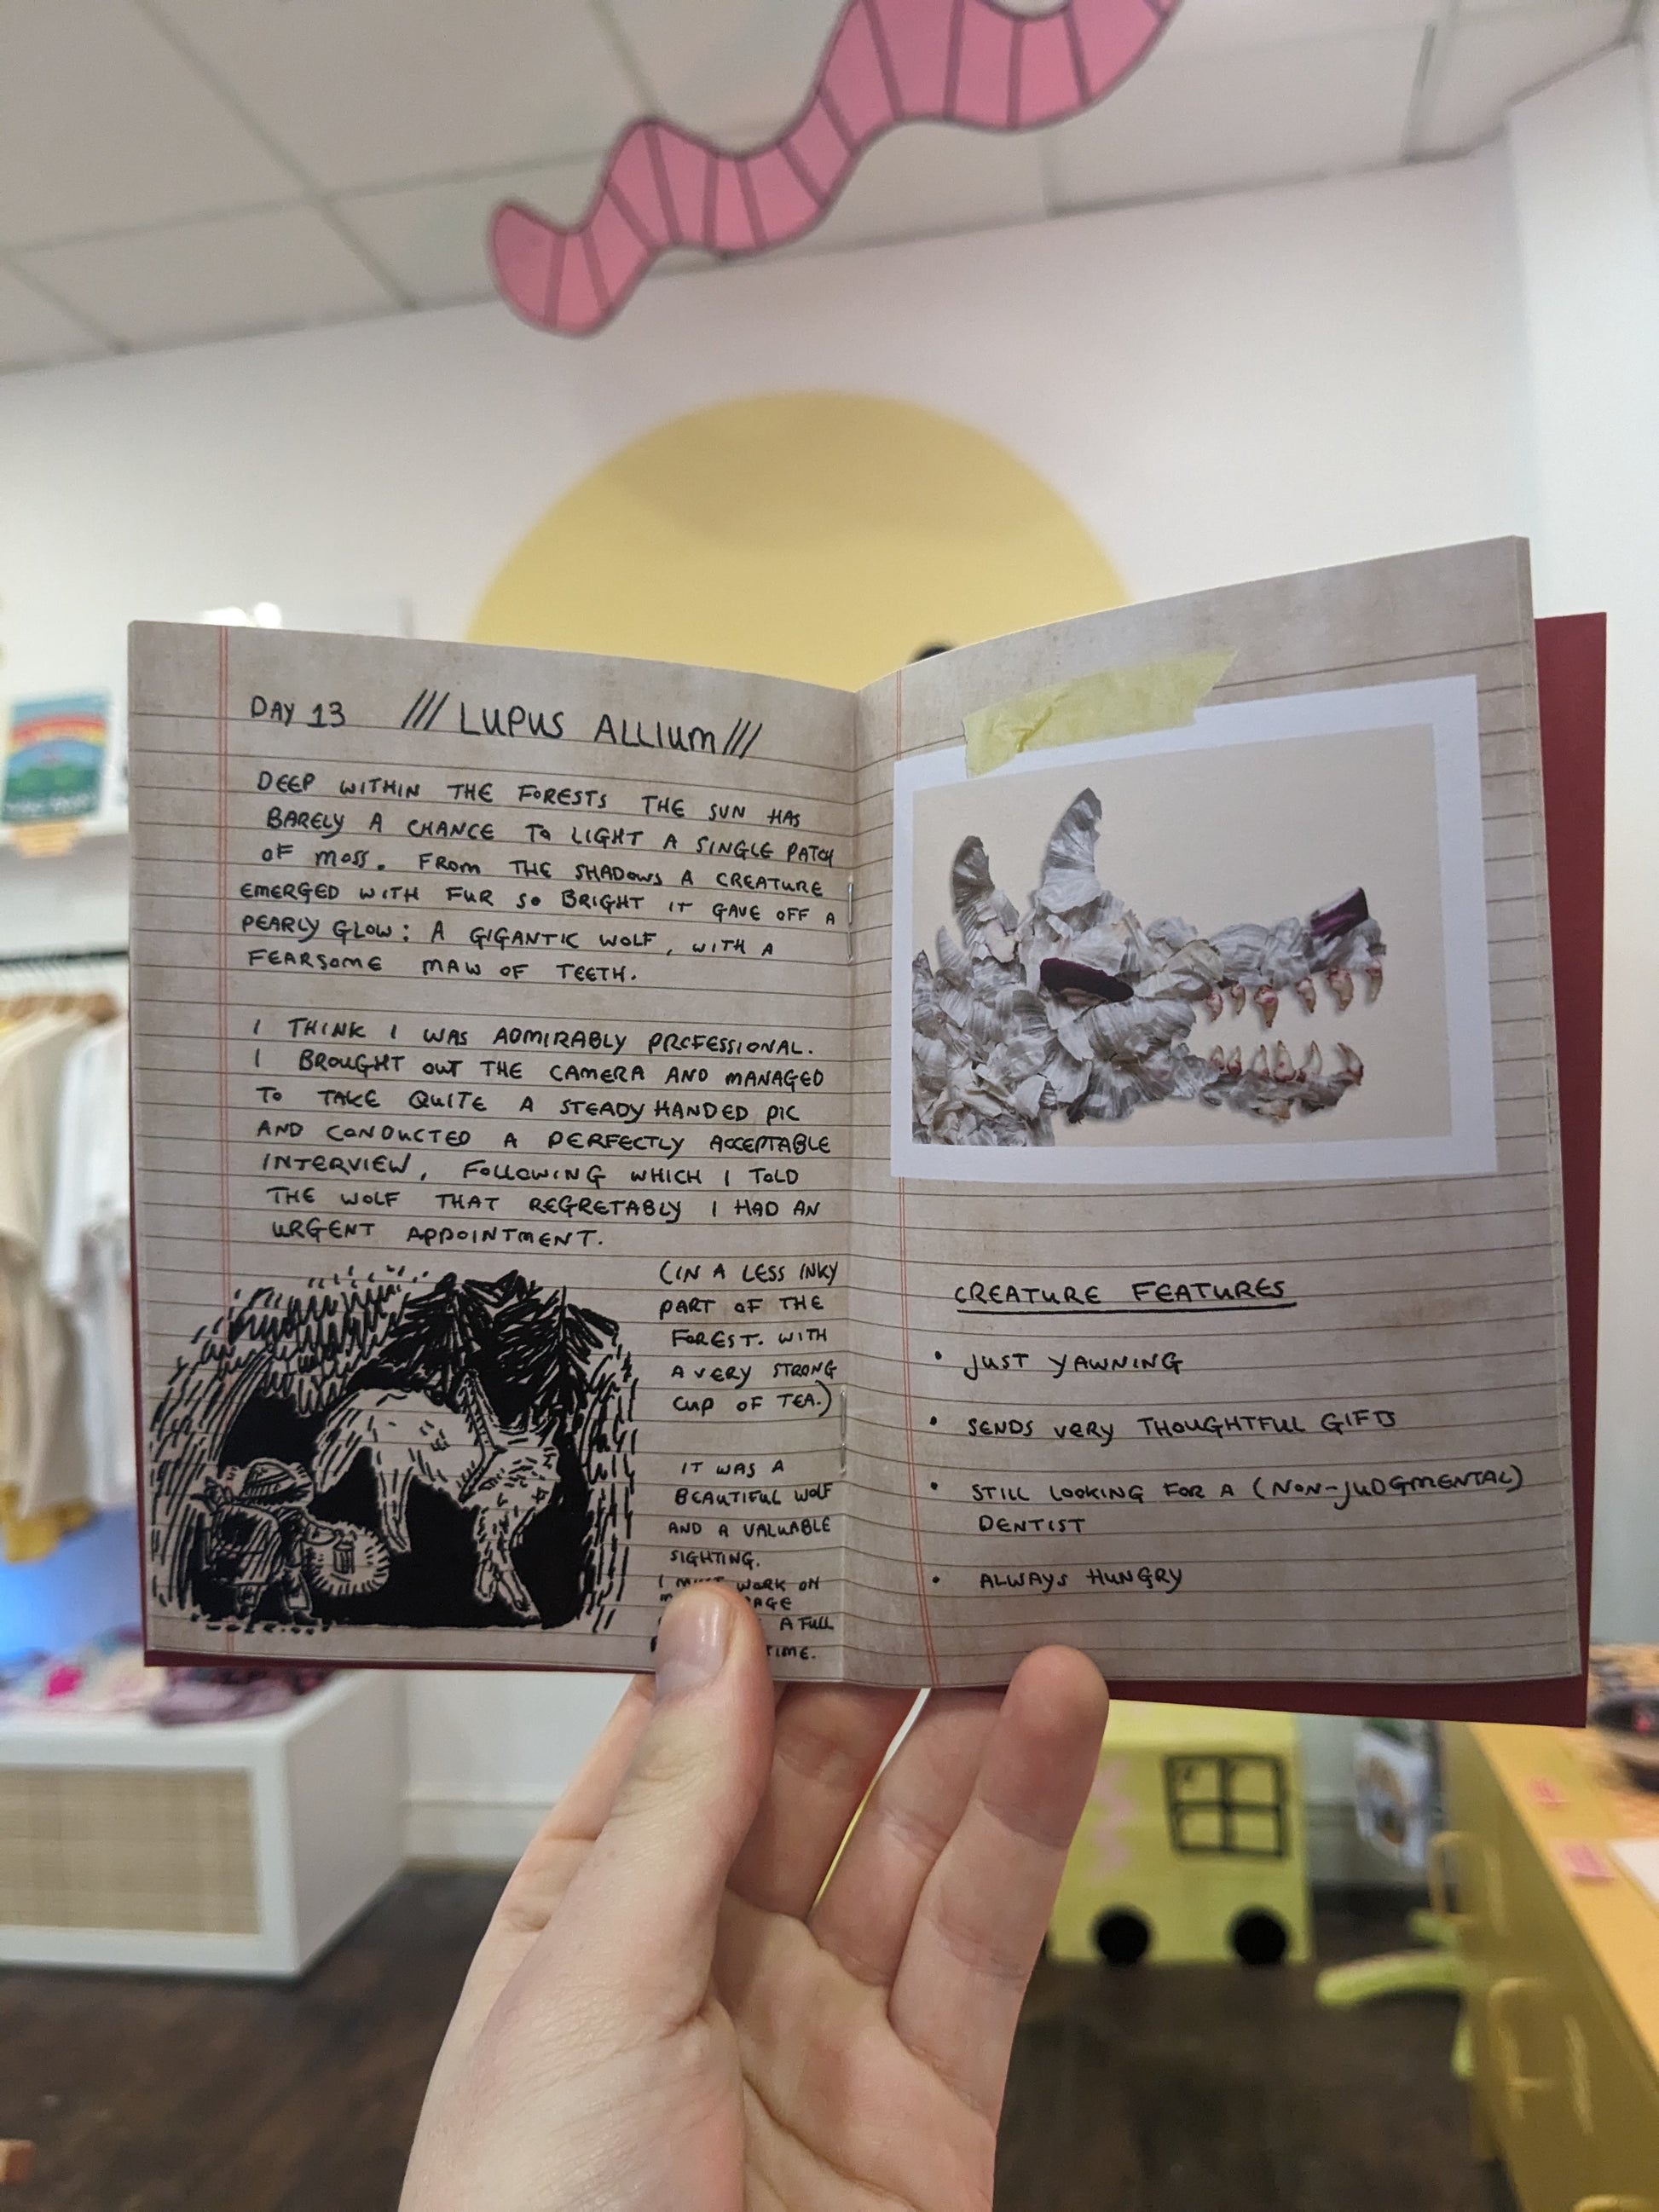 DAY 13 /// LUPUS ALLIUM ///
DEEP WITHIN THE FORESTS THE SUN HAS
BARELY A CHANCE TO LIGHT A SINGLE PATCH
OF MOSS. FROM THE SHADOWS A CREATURE
EMERGED WITH FUR SO BRIGHT IT GAVE OFF A
PEARLY GLOW: A GIGANTIC WOLF, WITH A
FEARSOME MAW OF TEETH.
I THINK I WAS ADMIRABLY PROFESSIONAL.
I BROUGHT OUT THE CAMERA AND MANAGED
TO TAKE QUITE A STEADY HANDED PIC
AND CONDUCTED A PERFECTLY ACCEPTABLE
INTERVIEW, FOLLOWING WHICH I TOLD
THE WOLF THAT REGRETABLY I HAD AN
URGENT APPOINTMENT.
(IN A LESS INKY
PART OF THE
FOREST. WITH
A VERY STRONG
CUP OF TEA.)
IT WAS A
BEAUTIFUL WOLF
AND A VALUABLE
SIGHTING.
I MUST WORK ON
A FULL
TIME.
CREATURE FEATURES
• JUST YAWNING
• SENDS VERY THOUGHTFUL GIFTS
• STILL LOOKING FOR A (NON-JUDGMENTAL)
DENTIST
• ALWAYS HUNGRY